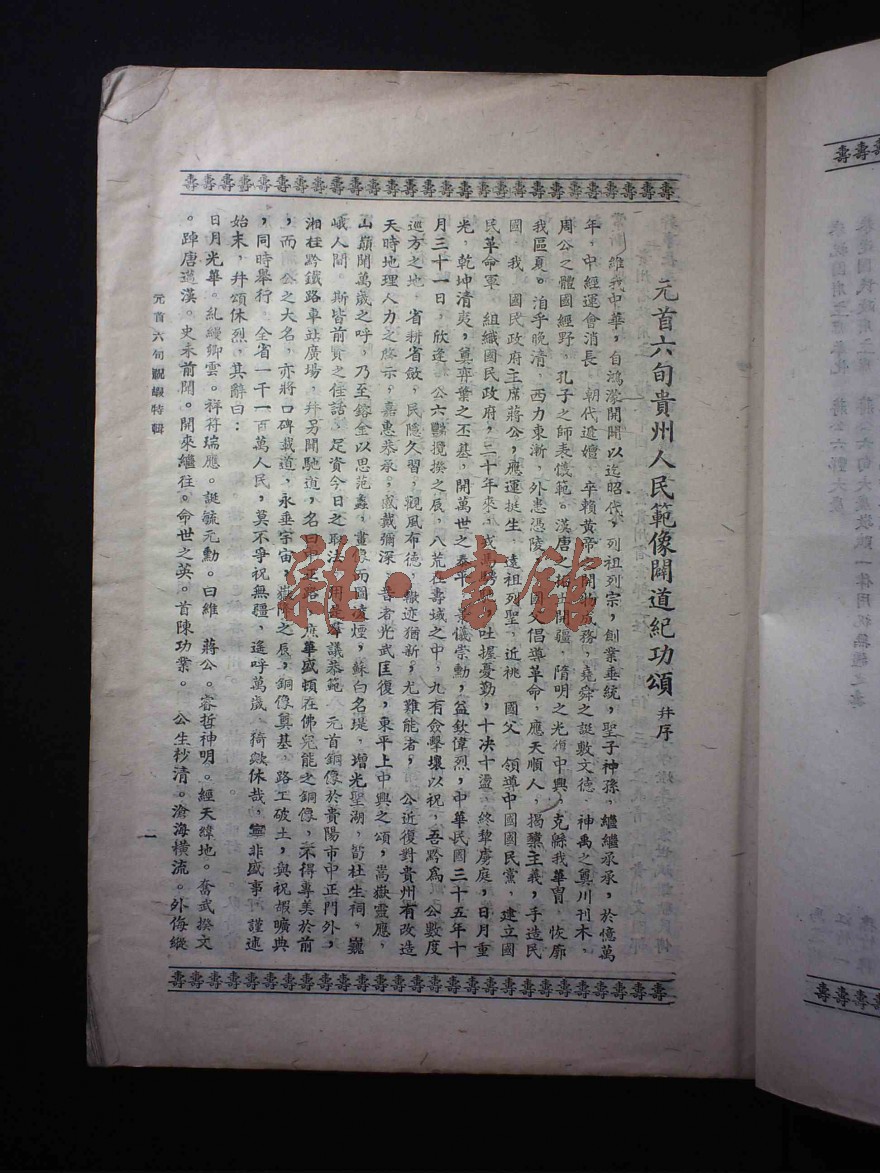 元首六旬貴州人民範像闢道紀功頌 并序
維我中華，自鴻濛開闢以迄昭代，列祖列宗，創業垂統，聖子神孫，繼繼承承，於億萬
年，中經運會消長，朝代遞嬗，卒賴黃帝之開物成務，堯舜之誕敷文德，神禹之奠川刊木，
周公之體國經野，孔子之師表儀範。漢唐之拓土開疆，隋明之光復中興，克緜我華冑，恢廓
我區夏。洎乎晚清，西力東漸，外患憑陵，國父倡導革命，應天順人，揭櫫主義，手造民
國，我 國民政府主席蔣公，應運挺生，遠祖列聖，近祧 國父，領導中國國民黨，建立國
民革命軍，組織國民政府，二十年來，吐握憂勤，十決十盪，終犂虜庭，日月重
光，乾坤清夷，奠弈葉之丕基，開萬世之泰平，景儀崇勳，益欽偉烈，中華民國三十五年十
月三十一日，欣逢 公六豑攬揆之辰，八荒在壽域之中，九有僉擊壤以祝，吾黔爲 公數度
巡方之地，省耕省斂，民隱久習，觀風布德，轍迹猶新，尤難能者， 公近復對貴州有改造
天時地理人力之啓示，嘉惠恭承，感戴彌深，昔者光武匡復，東平上中興之頌，嵩嶽靈應，
山嶺聞萬歲之呼，乃至鎔金以思范蠡，畫像而圖凌煙，蘇白名堤，增光聖湖，荀杜生祠，巍
峨人間。斯皆前賢之佳話，足資今日之取法，用集羣議恭範 元首銅像於貴陽市中正門外，
湘桂黔鐵路車站廣場，并另闢馳道，名曰中正路，庶華盛頓在佛兒能之銅像，不得專美於前
，而 公之大名，亦將口碑載道，永垂宇宙，嶽降之辰，銅像奠基，路工破土，與祝嘏曠典
，同時舉行，全省一千一百萬人民，莫不爭祝無疆，遙呼萬歲，猗歟休哉，寧非盛事，謹述
始末，并頌休烈，其辭曰：
日月光華。糺縵卿雲。祥符瑞應。誕毓元勳。曰維 蔣公。睿哲神明。經天緯地。奮武揆文
。踔唐邁漢。史未前聞。開來繼往。命世之英。首陳功業。 公生杪清。滄海橫流。外侮縱
元首六旬祝嘏特輯
一
雜·書館